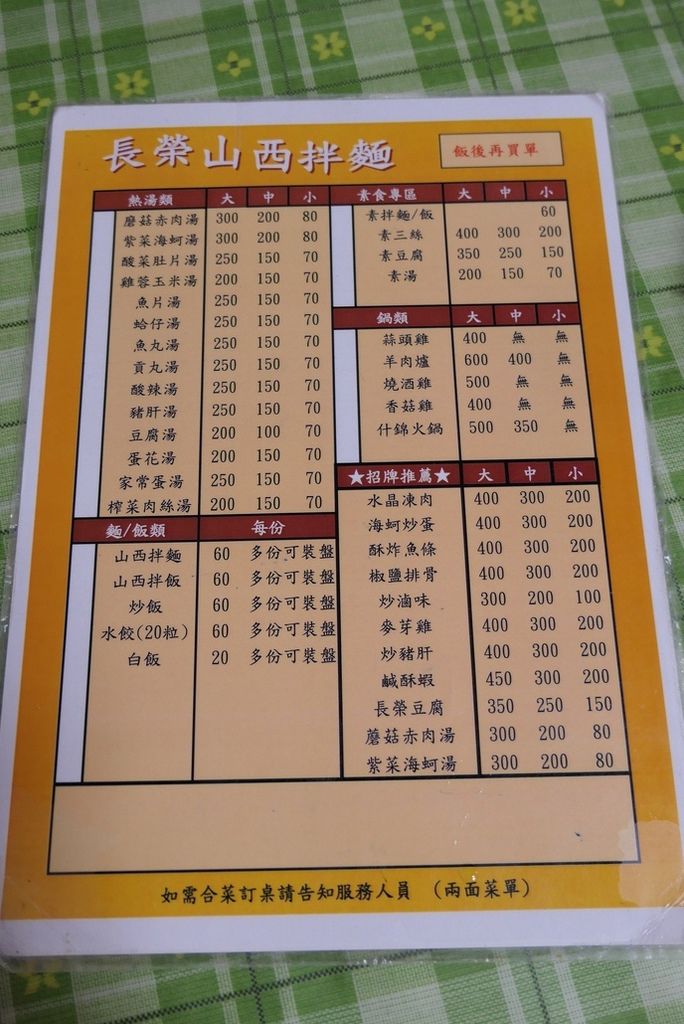 長榮山西拌麵
飯後再買單
熱湯類 大 中 小
磨菇赤肉湯 300 200 80
紫菜海蚵湯 300 200 80
酸菜肚片湯 250 150 70
雞蓉玉米湯 200 150 70
魚片湯 250 150 70
蛤仔湯 250 150 70
魚丸湯 250 150 70
貢丸湯 250 150 70
酸辣湯 250 150 70
豬肝湯 250 150 70
豆腐湯 200 100 70
蛋花湯 200 150 70
家常蛋湯 250 150 70
榨菜肉絲湯 200 150 70
麵/飯類 每份
山西拌麵 60 多份可裝盤
山西拌飯 60 多份可裝盤
炒飯 60 多份可裝盤
水餃(20粒) 60 多份可裝盤
白飯 20 多份可裝盤
素食專區 大 中 小
素拌麵/飯 60
素三絲 400 300 200
素豆腐 350 250 150
素湯 200 150 70
鍋類 大 中 小
蒜頭雞 400 無 無
羊肉爐 600 400 無
燒酒雞 500 無 無
香菇雞 400 無 無
什錦火鍋 500 350 無
★招牌推薦★ 大 中 小
水晶凍肉 400 300 200
海蚵炒蛋 400 300 200
酥炸魚條 400 300 200
椒鹽排骨 400 300 200
炒滷味 300 200 100
麥芽雞 400 300 200
炒豬肝 400 300 200
鹹酥蝦 450 300 200
長榮豆腐 350 250 150
蘑菇赤肉湯 300 200 80
紫菜海蚵湯 300 200 80
如需合菜訂桌請告知服務人員 (兩面菜單)